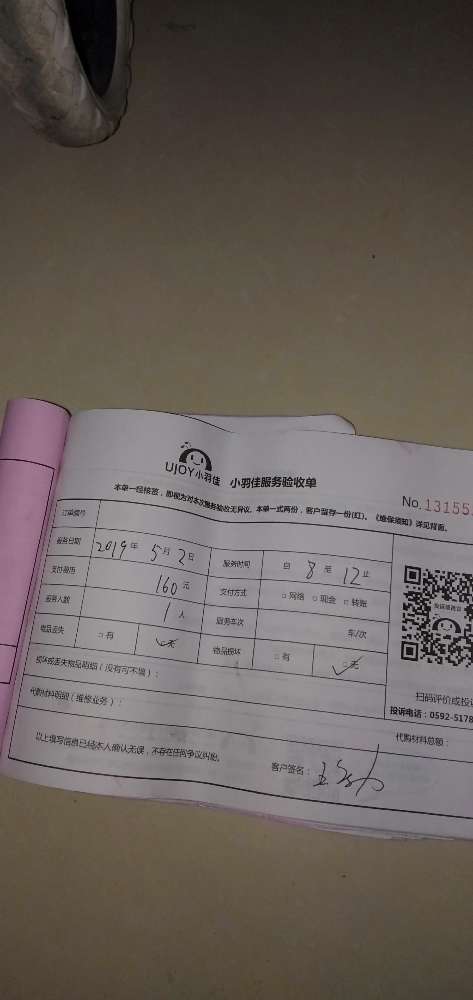 UJOY小羽佳 小羽佳服务验收单
本单一经核签，即视为对本次服务验收无异议。本单一式两份，客户留存一份(红)。《维保须知》详见背面。
No.13155
订单编号
服务日期 2019年5月2日 服务时间 自8至12止
支付费用 160元 支付方式 □网络 □现金 □转账
服务人数 1人 服务车次 车/次
物品丢失 □有 □无 物品损坏 □有 □无
损坏或丢失物品明细（没有可不填）：
扫码评价或投诉
投诉电话：0592-5178
代购材料明细（维修业务）： 代购材料总额：
以上填写信息已经本人确认无误，不存在任何争议纠纷。 客户签名：